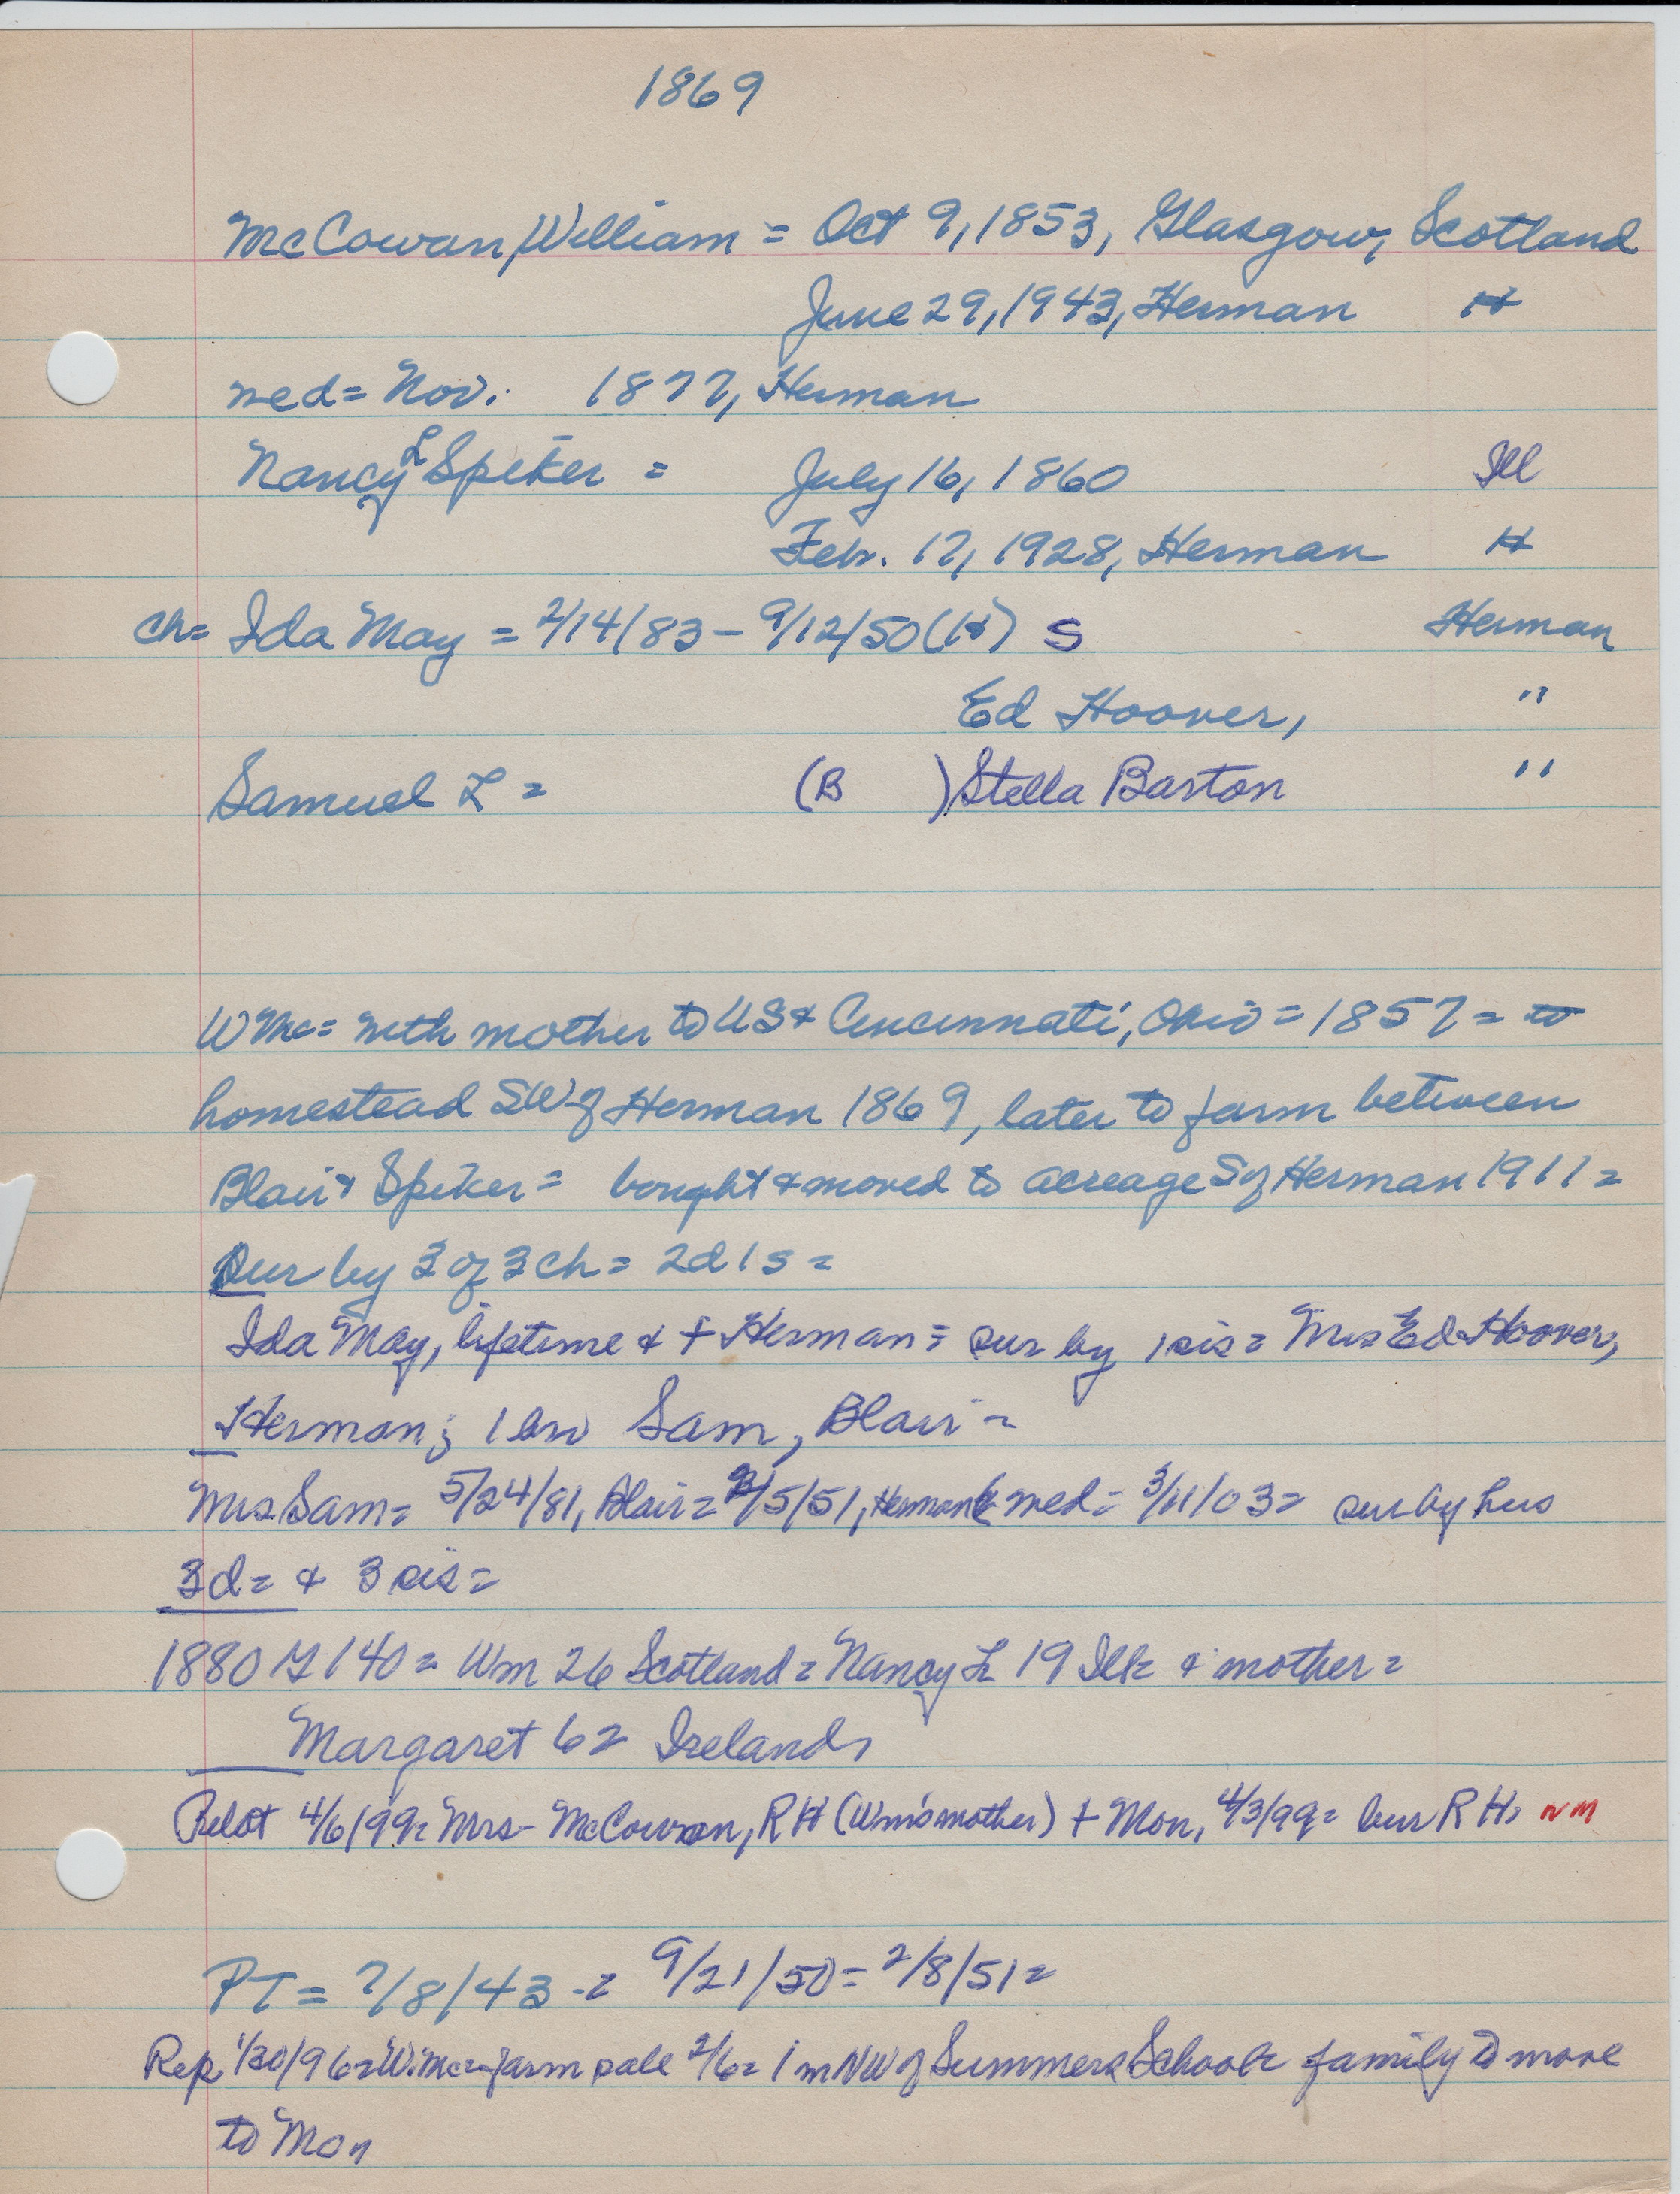 1869
McCowan, William = Oct 9, 1853, Glasgow, Scotland
June 29, 1943, Herman H
wed = Nov. 1877, Herman
Nancy L Spiker = July 16, 1860 Ill
Febr. 17, 1928, Herman H
ch= Ida May = 2/14/83 - 9/12/50 (H) S Herman
Ed Hoover, "
Samuel L = (B ) Stella Barton "
WMc= with mother to US & Cincinnati, Ohio = 1857 = to
homestead SW of Herman 1869, later to farm between
Blair & Spiker = bought & moved to acreage S of Herman 1911 =
Sur by 3 of 3 ch = 2d 1s =
Ida May, lifetime & + Herman = sur by 1 sis = Mrs Ed Hoover,
Herman; 1 bro Sam, Blair =
Mrs Sam = 5/24/81, Blair = 2/5/51, Herman wed = 3/11/03 = sur by hus
3d = & 3 sis =
1880 140 = Wm 26 Scotland = Nancy L 19 Ill = & mother =
Margaret 62 Ireland,
Pilot 4/6/99 = Mrs - McCowan, RH (Wm's mother) + Mon, 4/3/99 = bur RH, NM
PT = 7/8/43 - = 9/21/50 = 2/8/51 =
Rep 1/30/96 = W. Mc = farm sale 2/6 = 1 m NW of Summers School = family to move
to Mon